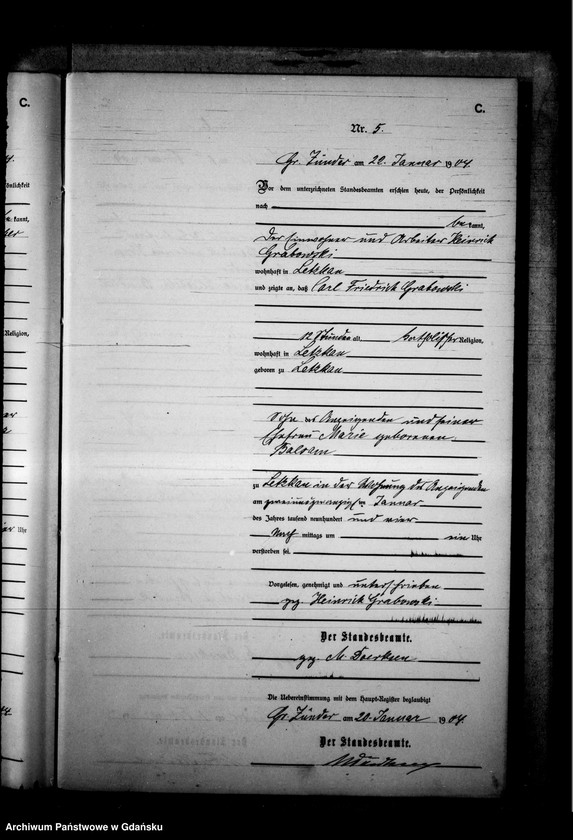 C.
C.
Nr. 5.
Gr. Zünder am 22. Januar 1904.
Vor dem unterzeichneten Standesbeamten erschien heute, der Persönlichkeit
nach
be kannt,
der Einwohner und Arbeiter Heinrich
Grabowski
wohnhaft in Letzkau
und zeigte an, daß Carl Friedrich Grabowski
12 Stunden alt, katholischer Religion,
wohnhaft in Letzkau
geboren zu Letzkau
Sohn des Anzeigenden und seiner
Ehefrau Marie geborenen
zu Letzkau in der Wohnung des Anzeigenden
am zweiundzwanzigsten Januar
des Jahres tausend neunhundert und vier
Nach mittags um ein Uhr
verstorben sei.
Vorgelesen, genehmigt und unterschrieben
gez. Heinrich Grabowski
Der Standesbeamte.
gez. M. Doerksen
Die Uebereinstimmung mit dem Haupt-Register beglaubigt
Gr. Zünder am Januar 1904.
Der Standesbeamte.
Archiwum Państwowe w Gdańsku